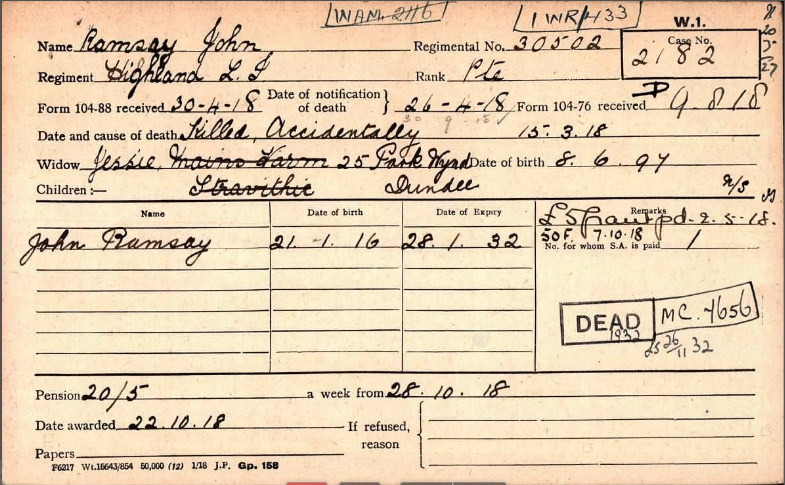 WAM 2116 1 WR/433 W.1.
Name Ramsay John Regimental No. 30502 Case No. 2182
Regiment Highland L I Rank Pte
Form 104-88 received 30-4-18 Date of notification of death } 26-4-18 Form 104-76 received 9.8.18
30 9 15
Date and cause of death Killed, Accidentally 15.3.18
Widow Jessie, Mains Farm 25 Park Wynd Date of birth 8.6.97
Children :— Stravithie Dundee
Name Date of birth Date of Expiry Remarks
£5 Grant pd. 2.5.18.
50F. 7.10.18
John Ramsay 21.1.16 28.1.32 No. for whom S.A. is paid 1
DEAD MC.4656
1932 25 26/11 32
Pension 20/5 a week from 28.10.18
Date awarded 22.10.18 If refused, reason
Papers
F6217 Wt.16643/854 50,000 (12) 1/18 J.P. Gp. 158